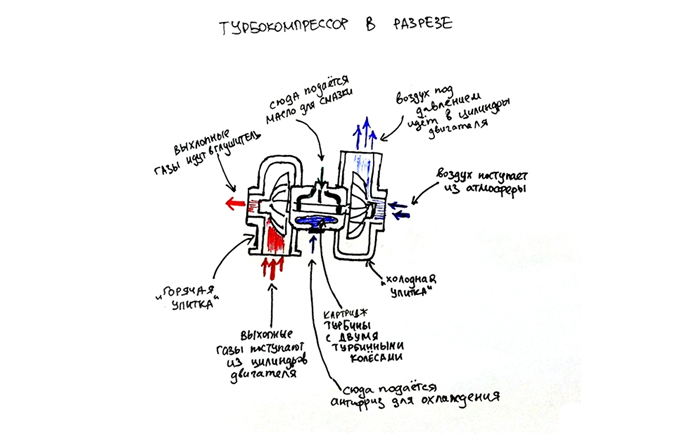 ТУРБОКОМПРЕССОР В РАЗРЕЗЕ
СЮДА ПОДАЁТСЯ
МАСЛО ДЛЯ СМАЗКИ
ВОЗДУХ ПОД
ДАВЛЕНИЕМ
ИДЁТ В ЦИЛИНДРЫ
ДВИГАТЕЛЯ
ВЫХЛОПНЫЕ
ГАЗЫ ИДУТ В ГЛУШИТЕЛЬ
ВОЗДУХ ПОСТУПАЕТ
ИЗ АТМОСФЕРЫ
"ГОРЯЧАЯ
УЛИТКА"
"ХОЛОДНАЯ
УЛИТКА"
ВЫХОПНЫЕ
ГАЗЫ ПОСТУПАЮТ
ИЗ ЦИЛИНДРОВ
ДВИГАТЕЛЯ
КАРТРИДЖ
ТУРБИНЫ
С ДВУМЯ
ТУРБИННЫМИ
КОЛЁСАМИ
СЮДА ПОДАЁТСЯ
АНТИФРИЗ ДЛЯ ОХЛАЖДЕНИЯ